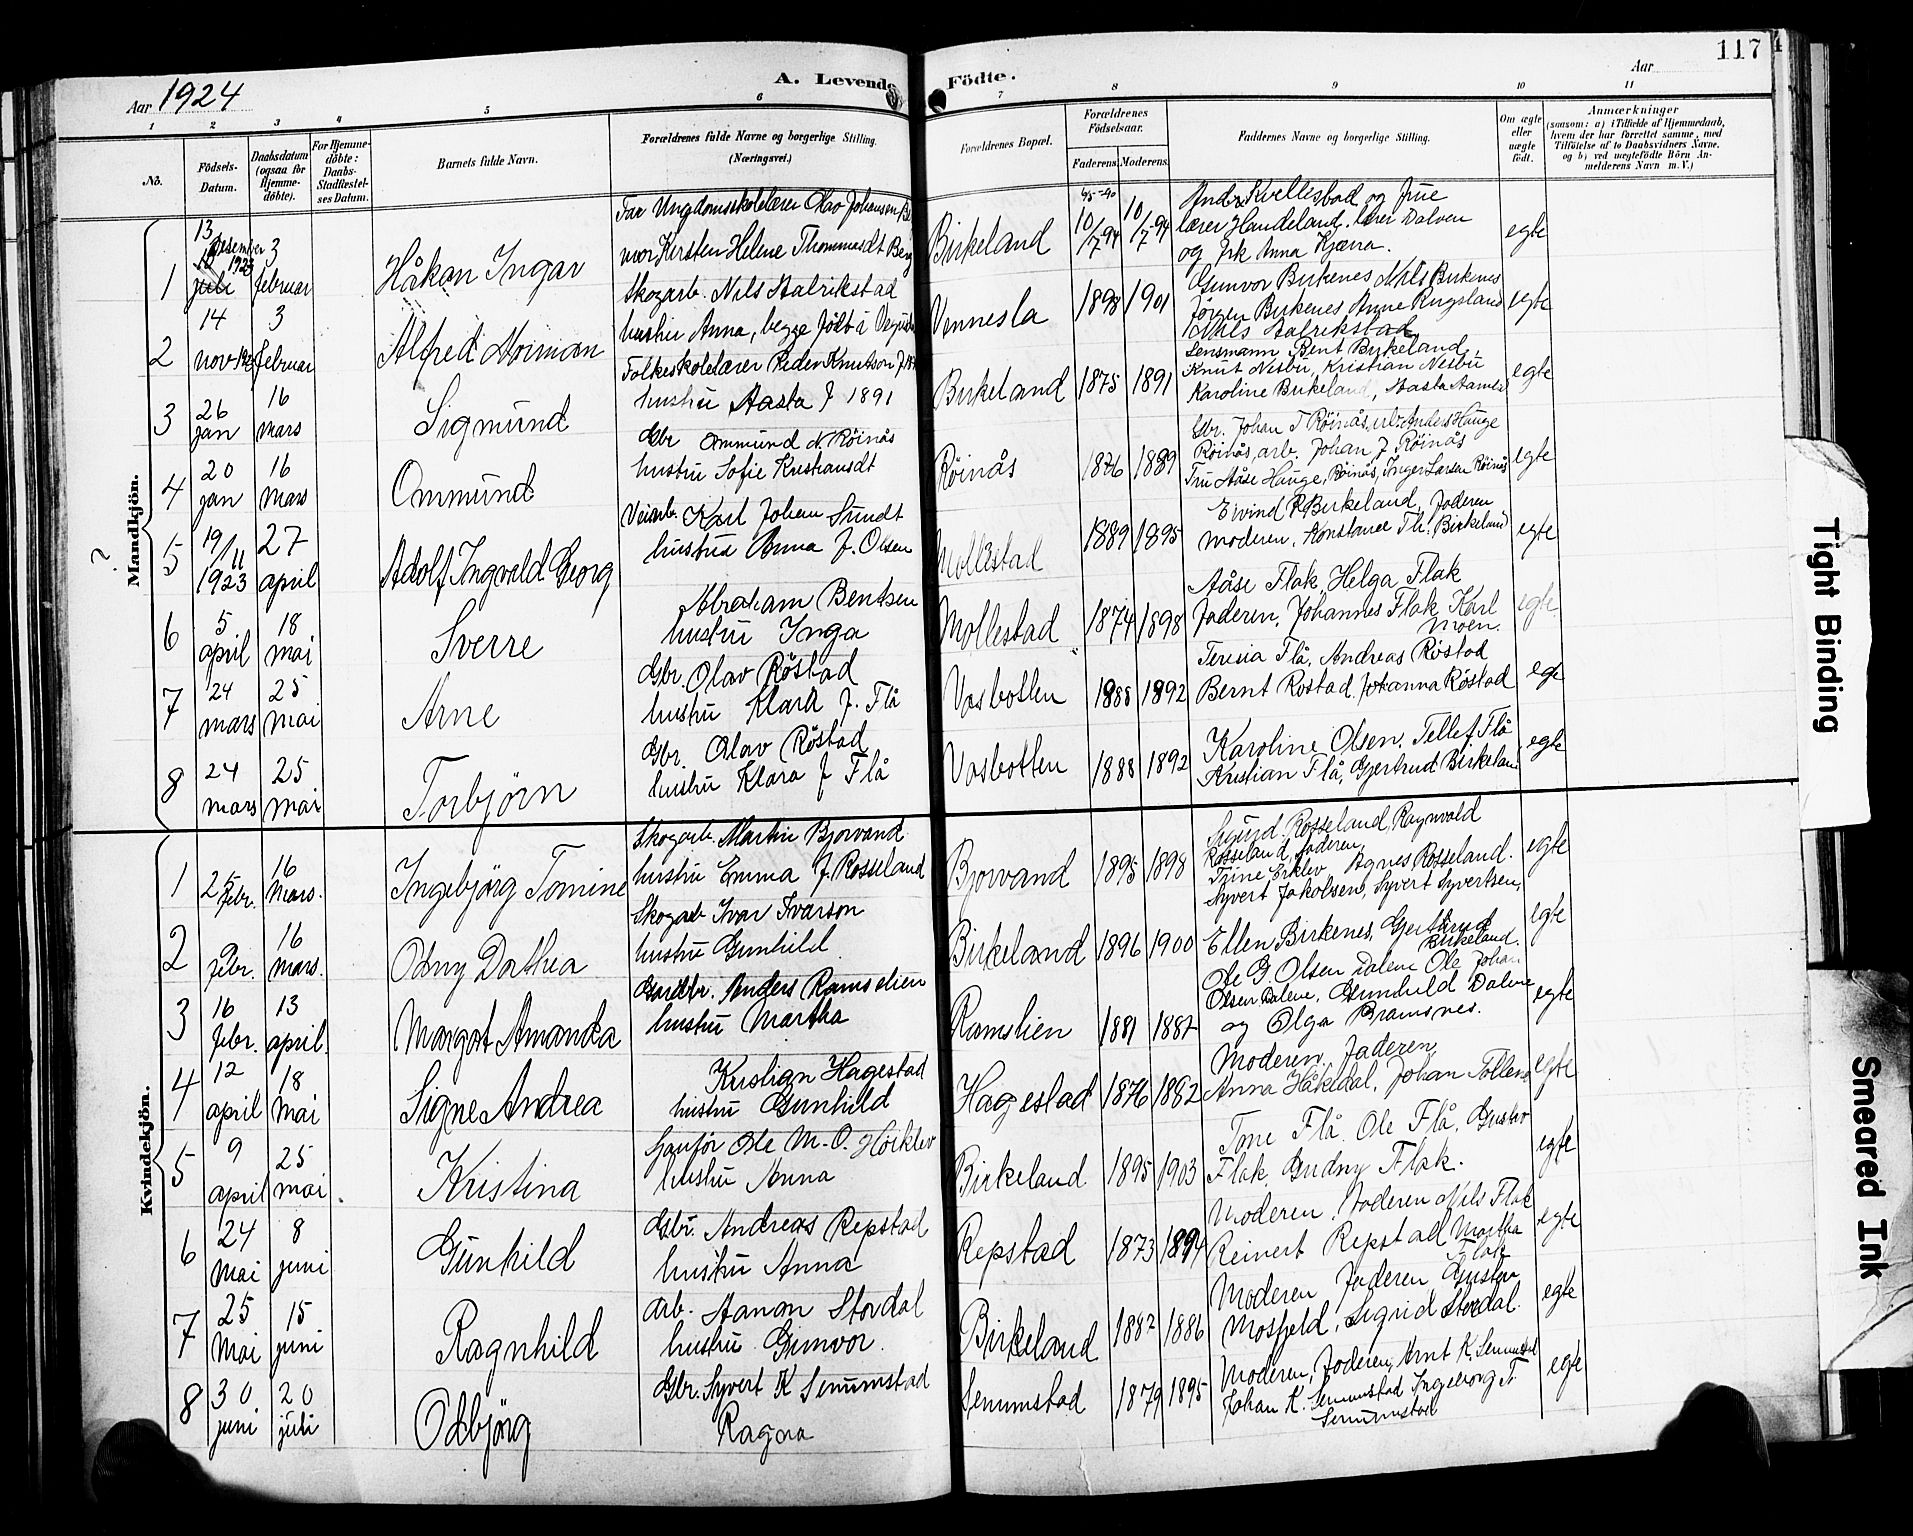 117
Aar 1924
A. Levende Födte.
Aar
1 2 3 4 5 6 7 8 9 10 11
No.
Födsels-Datum.
Daabsdatum (ogsaa for Hjemme-döbte).
For Hjemme-döbte: Daabs-Stadfæstel-ses Datum.
Barnets fulde Navn.
Forældrenes fulde Navne og borgerlige Stilling. (Næringsvei.)
Forældrenes Bopæl.
Forældrenes Födselsaar.
Faderens. Moderens.
Faddernes Navne og borgerlige Stilling.
Om ægte eller uægte födt.
Anmærkninger
(saasom: a) i Tilfælde af Hjemmedaab, hvem der har forrettet samme, med Tilföielse af to Daabsvidners Navne, og b) ved uægtefödte Börn An-melderens Navn m. V.)
Mandkjön.
?
Far Ungdomsskolelærer Olav Johansen
mor Kirsten Helene Thommasdt Berg
1 13 desember 1923 3 februar Håkon Ingar Birkeland 10/7 94 10/7 94
lærer Handeland, lærer Dalen
og frk Anna Kjærra.
egte
Skogarb. Nils Stalrikstad
hustru Anna, begge født i
2 14 nov 3 februar Alfred Norman Vennesla 1898 1901
Gunvor Birkenes Nils Birkenes
Jørgen Birkenes Anne Rugsland
Nils Stalrikstad
egte
Folkeskolelærer Peder Knutson
hustru Aasta f 1891
3 26 jan 16 mars Sigmund Birkeland 1875 1891
Lensmann Bent Birkeland,
Knut Nesbu, Kristian Nesbu
Karoline Birkeland,
egte
Gbr Ommund N. Röinås
hustru Sofie Kristiansdt
4 20 jan 16 mars Ommund Röinås 1876 1889
Gbr. Johan T Röinås, Anders Hauge
Röinås, arb. Johan J. Röinås
Fru Aase Hauge, Röinås, Inger Larsen Röinås
egte
Veiarb. Karl Johan Sundt
hustru Anna f. Olsen
5 19/11 1923 27 april Adolf Ingvald Georg Mollestad 1889 1895
Eivind R Birkeland, faderen
moderen, Konstance Th. Birkeland
egte
Abraham Bentsen
hustru Inga
6 5 april 18 mai Sverre Mollestad 1874 1898
Aase Flak, Helga Flak
faderen, Johannes Flak, Karl
Moen.
egte
Gbr. Olav Röstad
hustru Klara f. Flå
7 24 mars 25 mai Arne Vasbotten 1888 1892
Teresia Flå, Andreas Röstad
Bernt Röstad, Johanna Röstad
egte
Gbr. Olav Röstad
hustru Klara f Flå
8 24 mars 25 mai Torbjörn Vasbotten 1888 1892
Karoline Olsen, Tellef Flå
Kristian Flå, Gjertrud Birkeland
egte
Kvindekjön.
Skogarb. Martin Bjorvand
hustru Emma f. Rosseland
1 25 febr. 16 Mars. Ingebjörg Tomine Bjorvand 1895 1898
Sigurd Rosseland, Ragnvald
Rosseland, faderen,
Trine Erklev Agnes Rosseland.
egte
Skogarb Ivar Ivarson
hustru Gunhild
2 9 febr. 16 mars. Odny Dorthea Birkeland 1896 1900
Syvert Jakobsen, Syvert Syvertsen,
Ellen Birkenes, Gjertrud
Birkeland.
egte
Gardbr. Anders Ramslien
hustru Martha
3 16 febr. 13 april. Margot Amanda Ramslien 1881 1882
Ole G. Olsen Dalene Ole Johan
Olsen Dalene, Gunhild Dalene
og Olga Bramsnes.
egte
Kristian Hagestad
hustru Gunhild
4 12 april 18 mai Signe Andrea Hagestad 1876 1882
Moderen, faderen,
Anna Håkedal, Johan
egte
Ole M. O. Höiklev
hustru Anna
5 9 april 25 mai. Kristina Birkeland 1895 1903
Tone Flå, Ole Flå, Gustav
Flak, Gudny Flak.
egte
Gbr. Andreas Repstad
hustru Anna
6 24 Mai 8 juni Gunhild Repstad 1873 1894
Moderen, faderen Nils Flak
Reinert Repstad Martha
Flak
egte
arb. Stordal
hustru Gunvor.
7 25 Mai 15 juni Ragnhild Birkeland 1882 1886
Moderen, faderen, Gustav
Mosfjeld, Sigrid Stordal.
egte
Gbr. Syvert K Senumstad
Ragna
8 30 juni 20 juli Odbjörg Senumstad 1879 1895
Moderen, faderen, Arnt K. Senumstad
Johan K. Senumstad Ingeborg T.
Senumstad
egte
Tight Binding
Smeared Ink